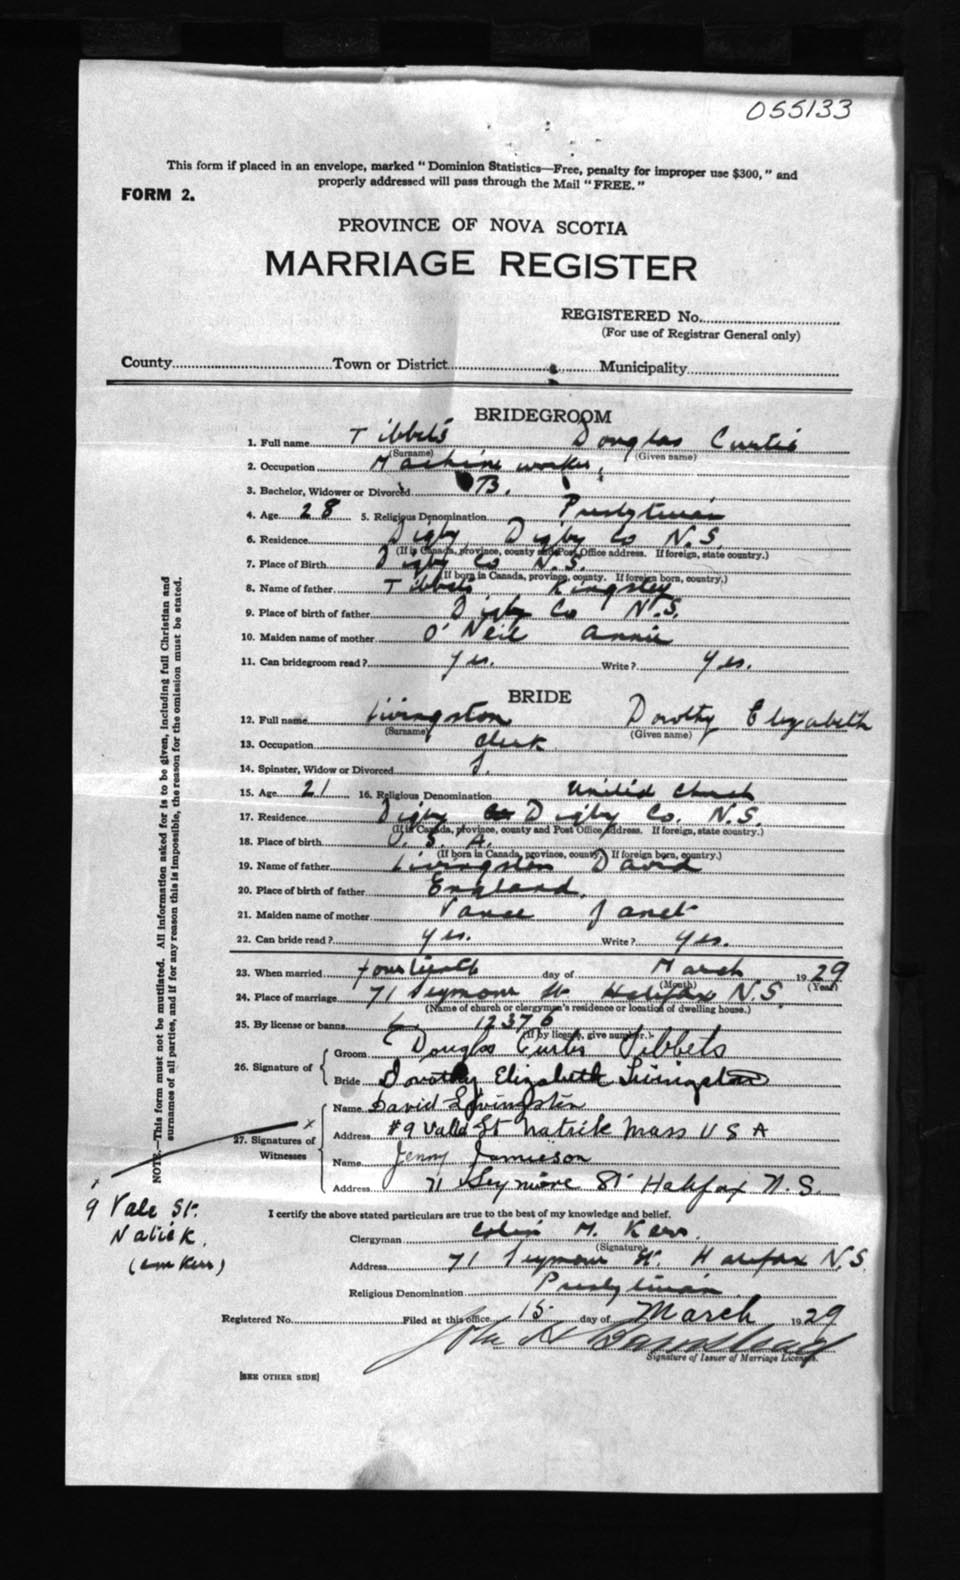 055133
This form if placed in an envelope, marked "Dominion Statistics—Free, penalty for improper use $300," and
properly addressed will pass through the Mail "FREE."
FORM 2.
PROVINCE OF NOVA SCOTIA
MARRIAGE REGISTER
REGISTERED No.
(For use of Registrar General only)
County Town or District Municipality
BRIDEGROOM
1. Full name Tibbets Douglas Curtis
(Surname) (Given name)
2. Occupation Machine worker
3. Bachelor, Widower or Divorced B.
4. Age 28 5. Religious Denomination Presbyterian
6. Residence Digby, Digby Co N.S.
(If in Canada, province, county and Post Office address. If foreign, state country.)
7. Place of Birth Digby Co N.S.
(If born in Canada, province, county. If foreign born, country.)
8. Name of father Tibbets Kingsley
9. Place of birth of father Digby Co N.S.
10. Maiden name of mother O'Neil Annie
11. Can bridegroom read? Yes. Write? Yes.
BRIDE
12. Full name Livingston Dorothy Elizabeth
(Surname) (Given name)
13. Occupation clerk
14. Spinster, Widow or Divorced S.
15. Age 21 16. Religious Denomination United Church
17. Residence Digby Digby Co. N.S.
(If in Canada, province, county and Post Office address. If foreign, state country.)
18. Place of birth U.S.A.
(If born in Canada, province, county. If foreign born, country.)
19. Name of father Livingston David
20. Place of birth of father England.
21. Maiden name of mother Vance Janet
22. Can bride read? Yes. Write? Yes.
23. When married fourteenth day of March 1929
(Month) (Year)
24. Place of marriage 71 Seymour St Halifax N.S.
(Name of church or clergyman's residence or location of dwelling house.)
25. By license or banns L. 12376
(If by license, give number.)
26. Signature of
Groom Douglas Curtis Tibbets
Bride Dorothy Elizabeth Livingston
27. Signatures of Witnesses
x
Name David Livingston
Address #9 Vale St Natick Mass U S A
Name Jenny Jamieson
Address 71 Seymore St Halifax N.S.
x
9 Vale St.
Natick.
(Kerr)
I certify the above stated particulars are true to the best of my knowledge and belief.
Clergyman Colin M. Kerr.
(Signature)
Address 71 Seymour St. Halifax N.S.
Religious Denomination Presbyterian
Registered No. Filed at this office 15 day of March 1929
John H Barnstead
Signature of Issuer of Marriage Licenses.
[SEE OTHER SIDE]
NOTE.—This form must not be mutilated. All information asked for is to be given, including full Christian and
surnames of all parties, and if for any reason this is impossible, the reason for the omission must be stated.